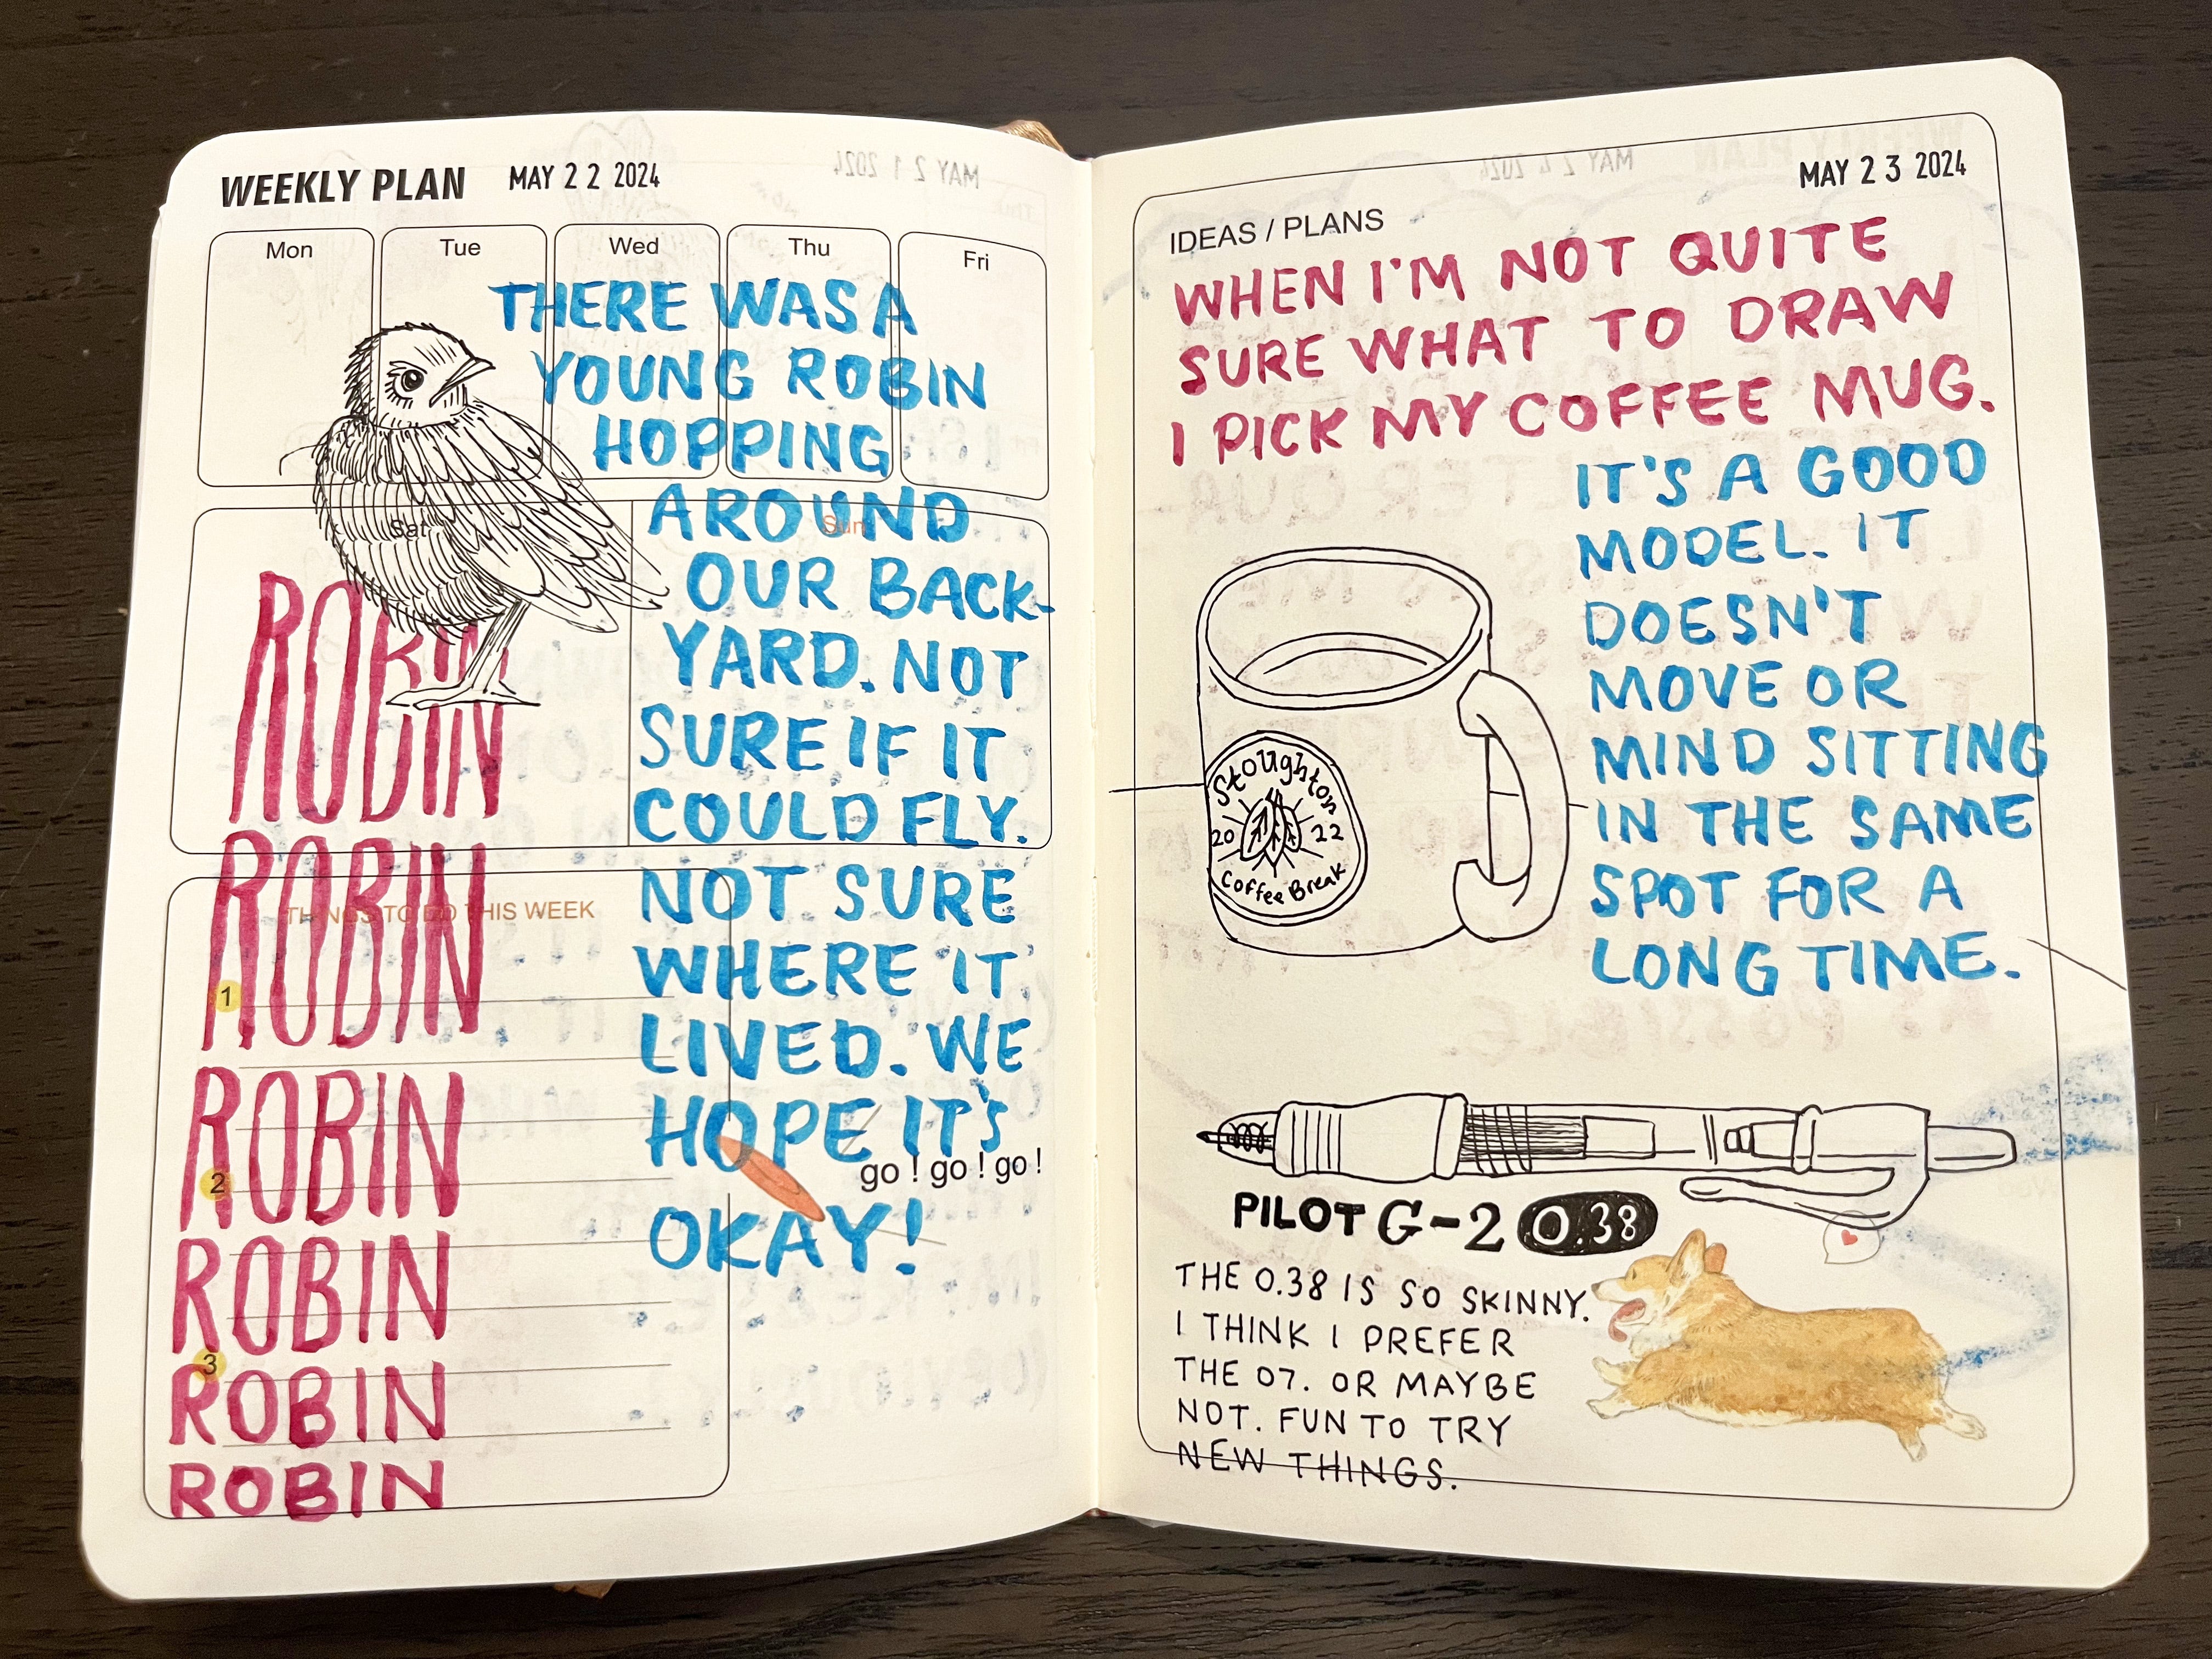 WEEKLY PLAN MAY 22 2024
Mon Tue Wed Thu Fri
THERE WAS A
YOUNG ROBIN
HOPPING
AROUND
Sat Sun
OUR BACK-
YARD. NOT
SURE IF IT
COULD FLY.
NOT SURE
WHERE IT
LIVED. WE
HOPE IT'S
go! go! go!
OKAY!
ROBIN
ROBIN
THINGS TO DO THIS WEEK
1
ROBIN
2
ROBIN
3
ROBIN
ROBIN
MAY 21 2024
MAY 24 2024
MAY 23 2024
IDEAS / PLANS
WHEN I'M NOT QUITE
SURE WHAT TO DRAW
I PICK MY COFFEE MUG.
IT'S A GOOD
MODEL. IT
DOESN'T
MOVE OR
MIND SITTING
IN THE SAME
SPOT FOR A
LONG TIME.
Stoughton
20 22
Coffee Break
PILOT G-2 0.38
THE 0.38 IS SO SKINNY.
I THINK I PREFER
THE 07. OR MAYBE
NOT. FUN TO TRY
NEW THINGS.